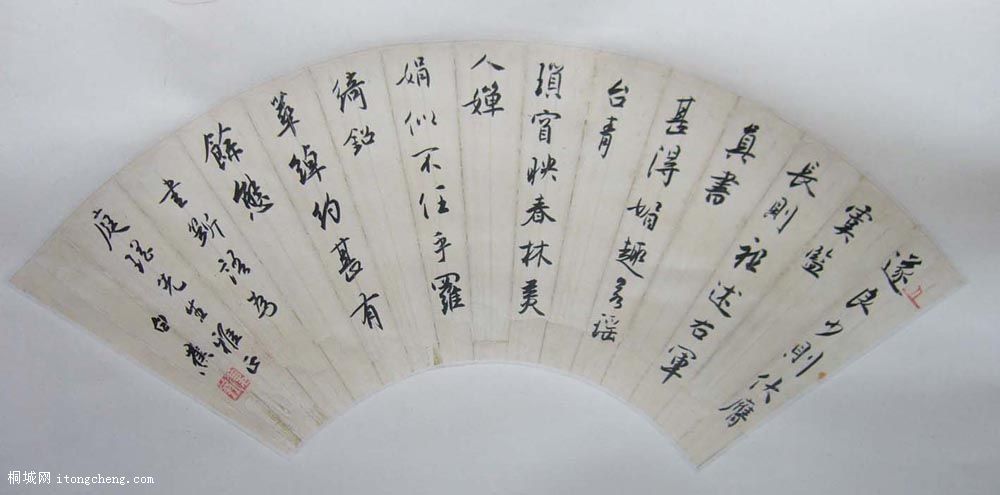 遂良少則伏膺
虞監
長則祖述右軍
真書
甚得媚趣若瑤
台青
瑣窅映春林美
人嬋
娟似不任乎羅
綺鉛
華綽約甚有
餘態
書斷語為
庭先生雅正
白蕉
桐城网 itongcheng.com